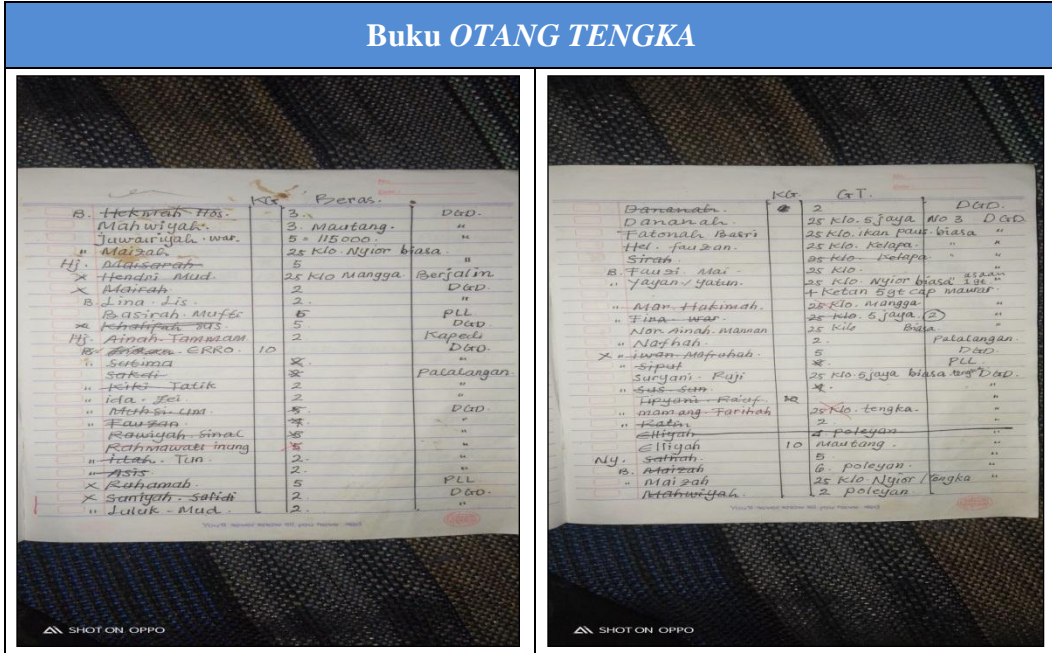 Buku OTANG TENGKA
KG Beras.
B. Hekmrah Hos. 3. DGD.
Mahwiyah. 3. Mautang. "
Juwairiyah. war. 5 = 115000. "
" Maizah 25 Klo. Nyior biasa. "
Hj. Maisarah 5 "
X Hendri Mud. 25 Klo Mangga Berjalin
X Mairah 2 DGD.
B. Lina - Lis. 2. "
Basirah. Mufts 5 PLL
X Khalifah sus. 5. DGD.
Hj. Ainah Tammam 2 Kapedi
B. ERRO. 10 DGD.
" Sutima "
Sakdi Palalangan.
" Kiki Tatik 2 "
" ida. Zei. 2 "
" Muhsi. um. 5 DGD.
" Fauzan. "
Rawiyah Sinal 5 "
Rahmawati inung 5 "
" Titah. Tun. 2. "
" Asis 2. "
X Ruhamah. 5 PLL
X Saniyah. Salidi 2. DGD.
" Luluk - Mud. 2. "
KG GT.
Dananah. 2 DGD.
Dananah. 25 Klo. 5 jaya No 3 DGD
Fatonah Basri 25 Klo. ikan paus. biasa "
Hel. fauzan. 25 Klo. Kelapa. " "
Sirah 25 Klo. Kelapa "
B. Fauzi. Mai. 25 Klo.
" Yayan. / Yatun. 25 Klo. Nyior biasa
+ Ketan 5gt cap mawar.
" Mar. Hakimah. 25 Klo. Mangga "
" Fina. war. 25 Klo. 5 jaya. (2) "
Nor Ainah. Mannan 25 Kilo Biasa "
" Nafhah. 2. Palalangan.
X " iwan. Mafruhah. 5 DGD.
" Siput PLL
Suryani. Puji 25 Klo. 5 jaya biasa DGD.
" Sus. Sun. "
Tipyani. Rauf.
" mamang. Farihah 25 Klo. tengka. "
" Ratin 2 "
Elliyah 4 poleyan "
Elliyah 10 Mautang. "
Ny. Salhah 5. "
B. Maizah 6. poleyan. "
" Maizah 25 Klo Nyior / tengka "
Mahwiyah. 2 poleyan
SHOT ON OPPO
SHOT ON OPPO